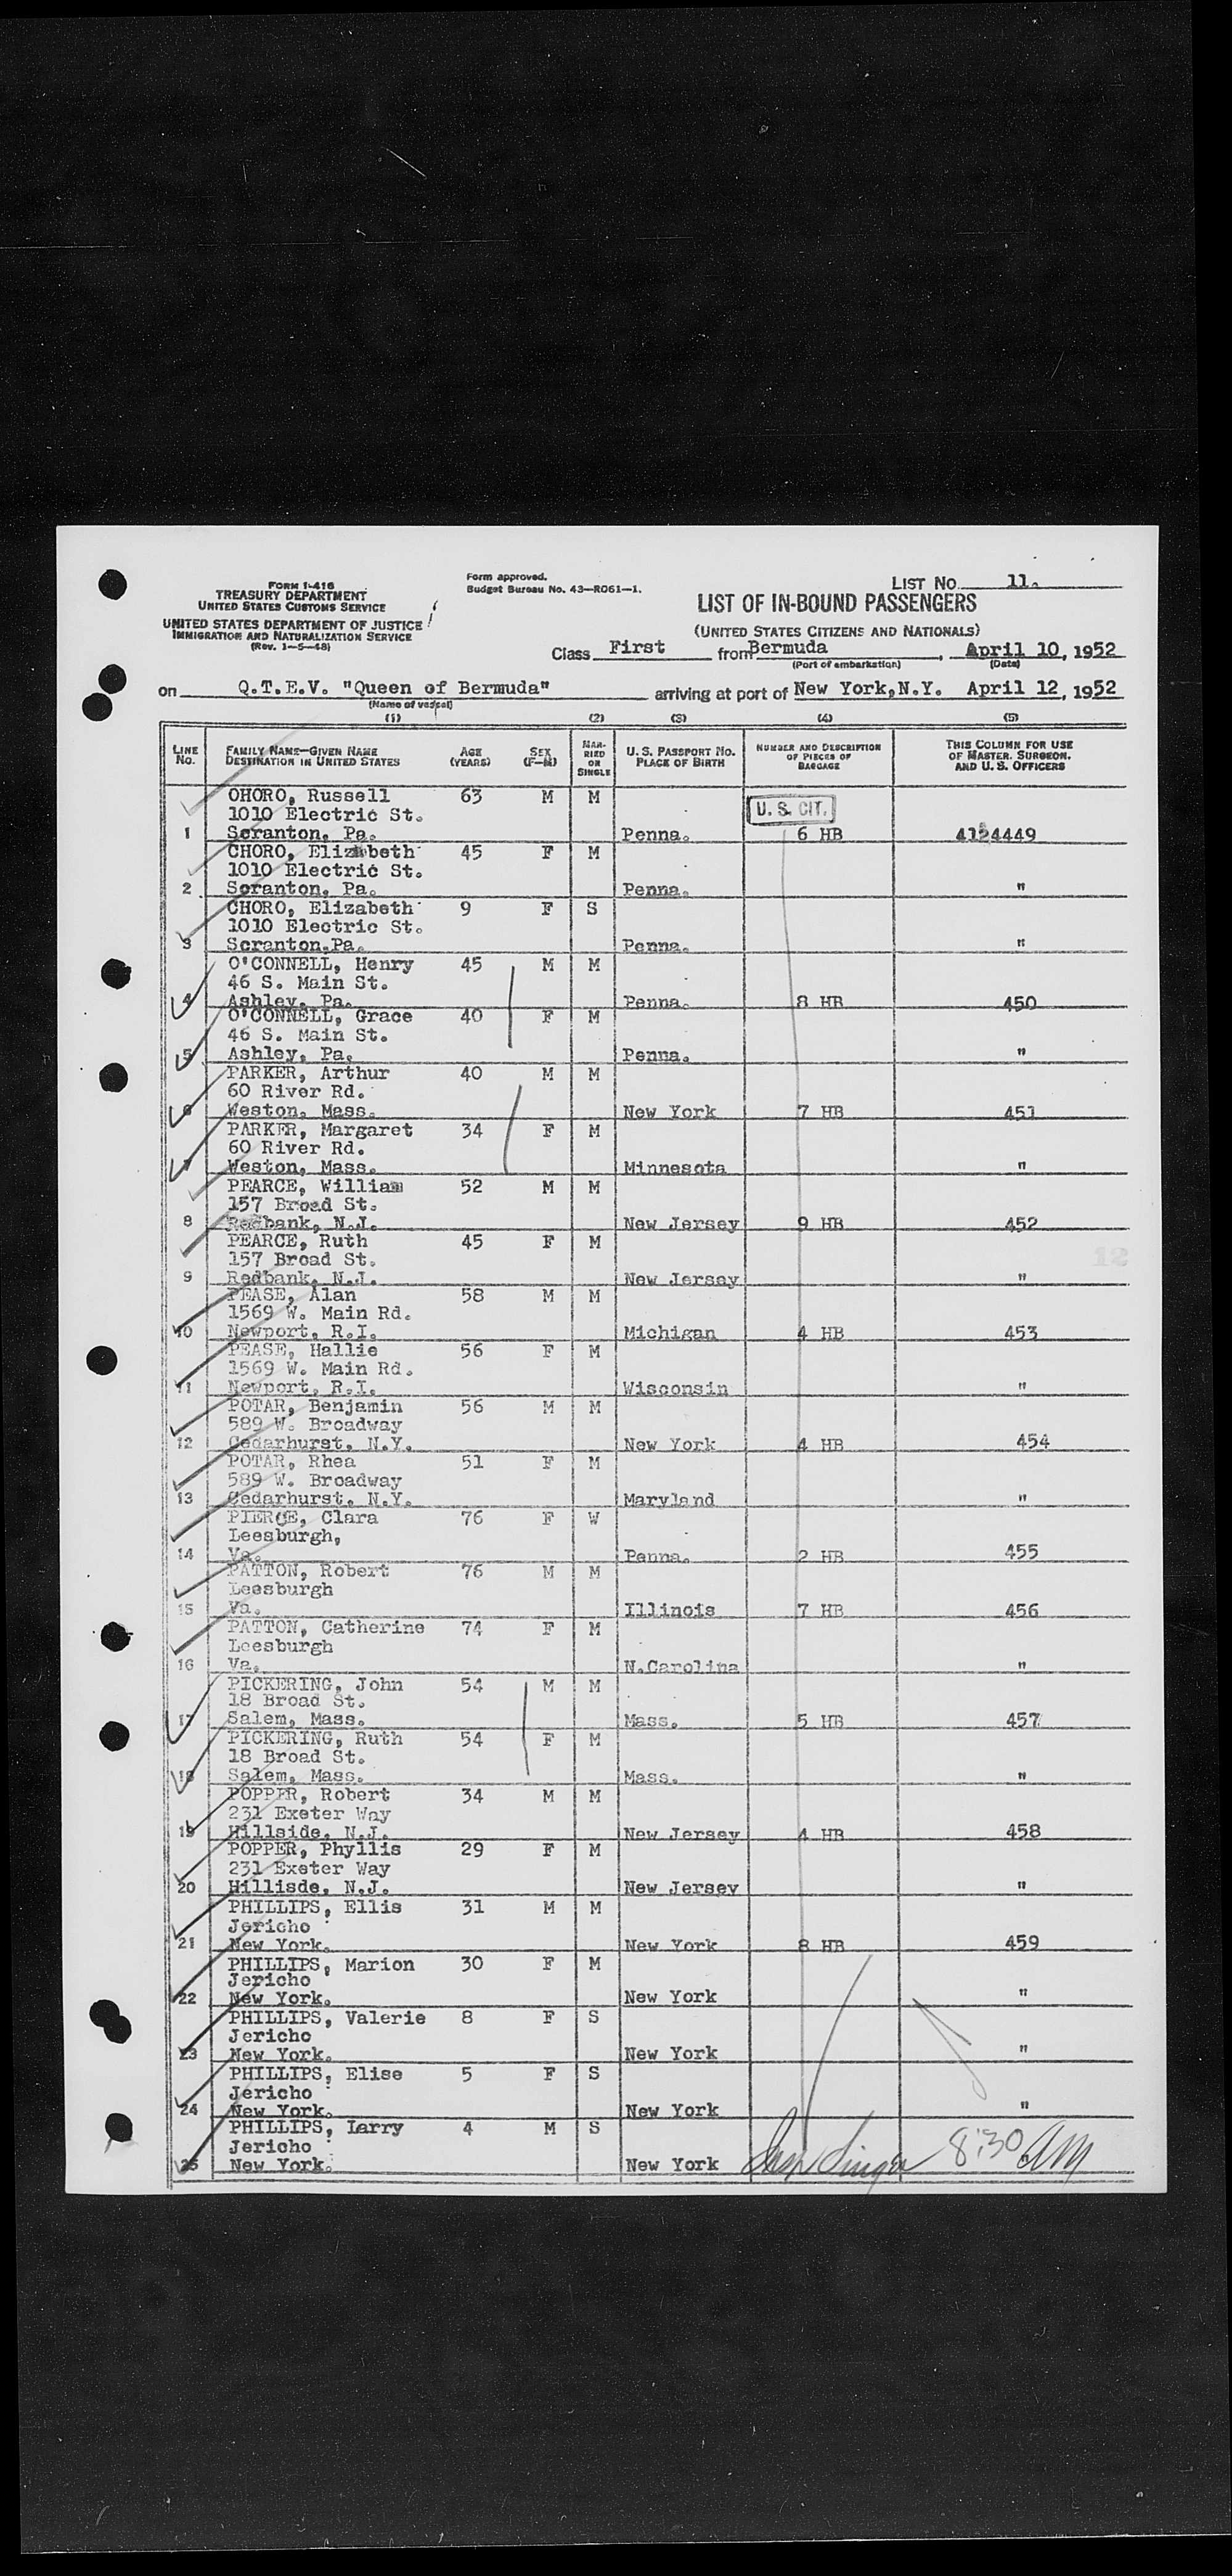 FORM I-416
TREASURY DEPARTMENT
UNITED STATES CUSTOMS SERVICE
UNITED STATES DEPARTMENT OF JUSTICE
IMMIGRATION AND NATURALIZATION SERVICE
(Rev. 1-5-48)
Form approved.
Budget Bureau No. 43-R061-1.
LIST No. 11.
LIST OF IN-BOUND PASSENGERS
(UNITED STATES CITIZENS AND NATIONALS)
Class First from Bermuda, April 10, 1952
(Port of embarkation) (Date)
on Q.T.E.V. "Queen of Bermuda" arriving at port of New York, N.Y. April 12, 1952
(Name of vessel)
(1) (2) (3) (4) (5)
LINE No. FAMILY NAME—GIVEN NAME DESTINATION IN UNITED STATES AGE (YEARS) SEX (F-M) MARRIED OR SINGLE U. S. PASSPORT No. PLACE OF BIRTH NUMBER AND DESCRIPTION OF PIECES OF BAGGAGE THIS COLUMN FOR USE OF MASTER, SURGEON, AND U. S. OFFICERS
OHORO, Russell 63 M M U. S. CIT.
1010 Electric St.
1 Scranton, Pa. Penna. 6 HB 4124449
CHORO, Elizabeth 45 F M
1010 Electric St.
2 Scranton, Pa. Penna. "
CHORO, Elizabeth 9 F S
1010 Electric St.
3 Scranton,Pa. Penna. "
O'CONNELL, Henry 45 M M
46 S. Main St.
4 Ashley, Pa. Penna. 8 HB 450
O'CONNELL, Grace 40 F M
46 S. Main St.
5 Ashley, Pa. Penna. "
PARKER, Arthur 40 M M
60 River Rd.
6 Weston, Mass. New York 7 HB 451
PARKER, Margaret 34 F M
60 River Rd.
7 Weston, Mass. Minnesota "
PEARCE, William 52 M M
157 Broad St.
8 Redbank, N.J. New Jersey 9 HB 452
PEARCE, Ruth 45 F M
157 Broad St.
9 Redbank, N.J. New Jersey "
12
PEASE, Alan 58 M M
1569 W. Main Rd.
10 Newport, R.I. Michigan 4 HB 453
PEASE, Hallie 56 F M
1569 W. Main Rd.
11 Newport, R.I. Wisconsin "
POTAR, Benjamin 56 M M
589 W. Broadway
12 Cedarhurst, N.Y. New York 4 HB 454
POTAR, Rhea 51 F M
589 W. Broadway
13 Cedarhurst, N.Y. Maryland "
PIERCE, Clara 76 F W
Leesburgh,
14 Va. Penna. 2 HB 455
PATTON, Robert 76 M M
Leesburgh
15 Va. Illinois 7 HB 456
PATTON, Catherine 74 F M
Leesburgh
16 Va. N.Carolina "
PICKERING, John 54 M M
18 Broad St.
17 Salem, Mass. Mass. 5 HB 457
PICKERING, Ruth 54 F M
18 Broad St.
18 Salem, Mass. Mass. "
POPPER, Robert 34 M M
231 Exeter Way
19 Hillside, N.J. New Jersey 4 HB 458
POPPER, Phyllis 29 F M
231 Exeter Way
20 Hillisde, N.J. New Jersey "
PHILLIPS, Ellis 31 M M
Jericho
21 New York. New York 8 HB 459
PHILLIPS, Marion 30 F M
Jericho
22 New York. New York "
PHILLIPS, Valerie 8 F S
Jericho
23 New York. New York "
PHILLIPS, Elise 5 F S
Jericho
24 New York. New York "
PHILLIPS, Larry 4 M S
Jericho
25 New York. New York 8:30 AM